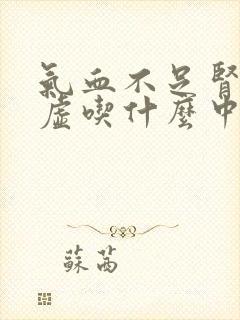 氣血不足腎
虛喫什麼中
蘇茜